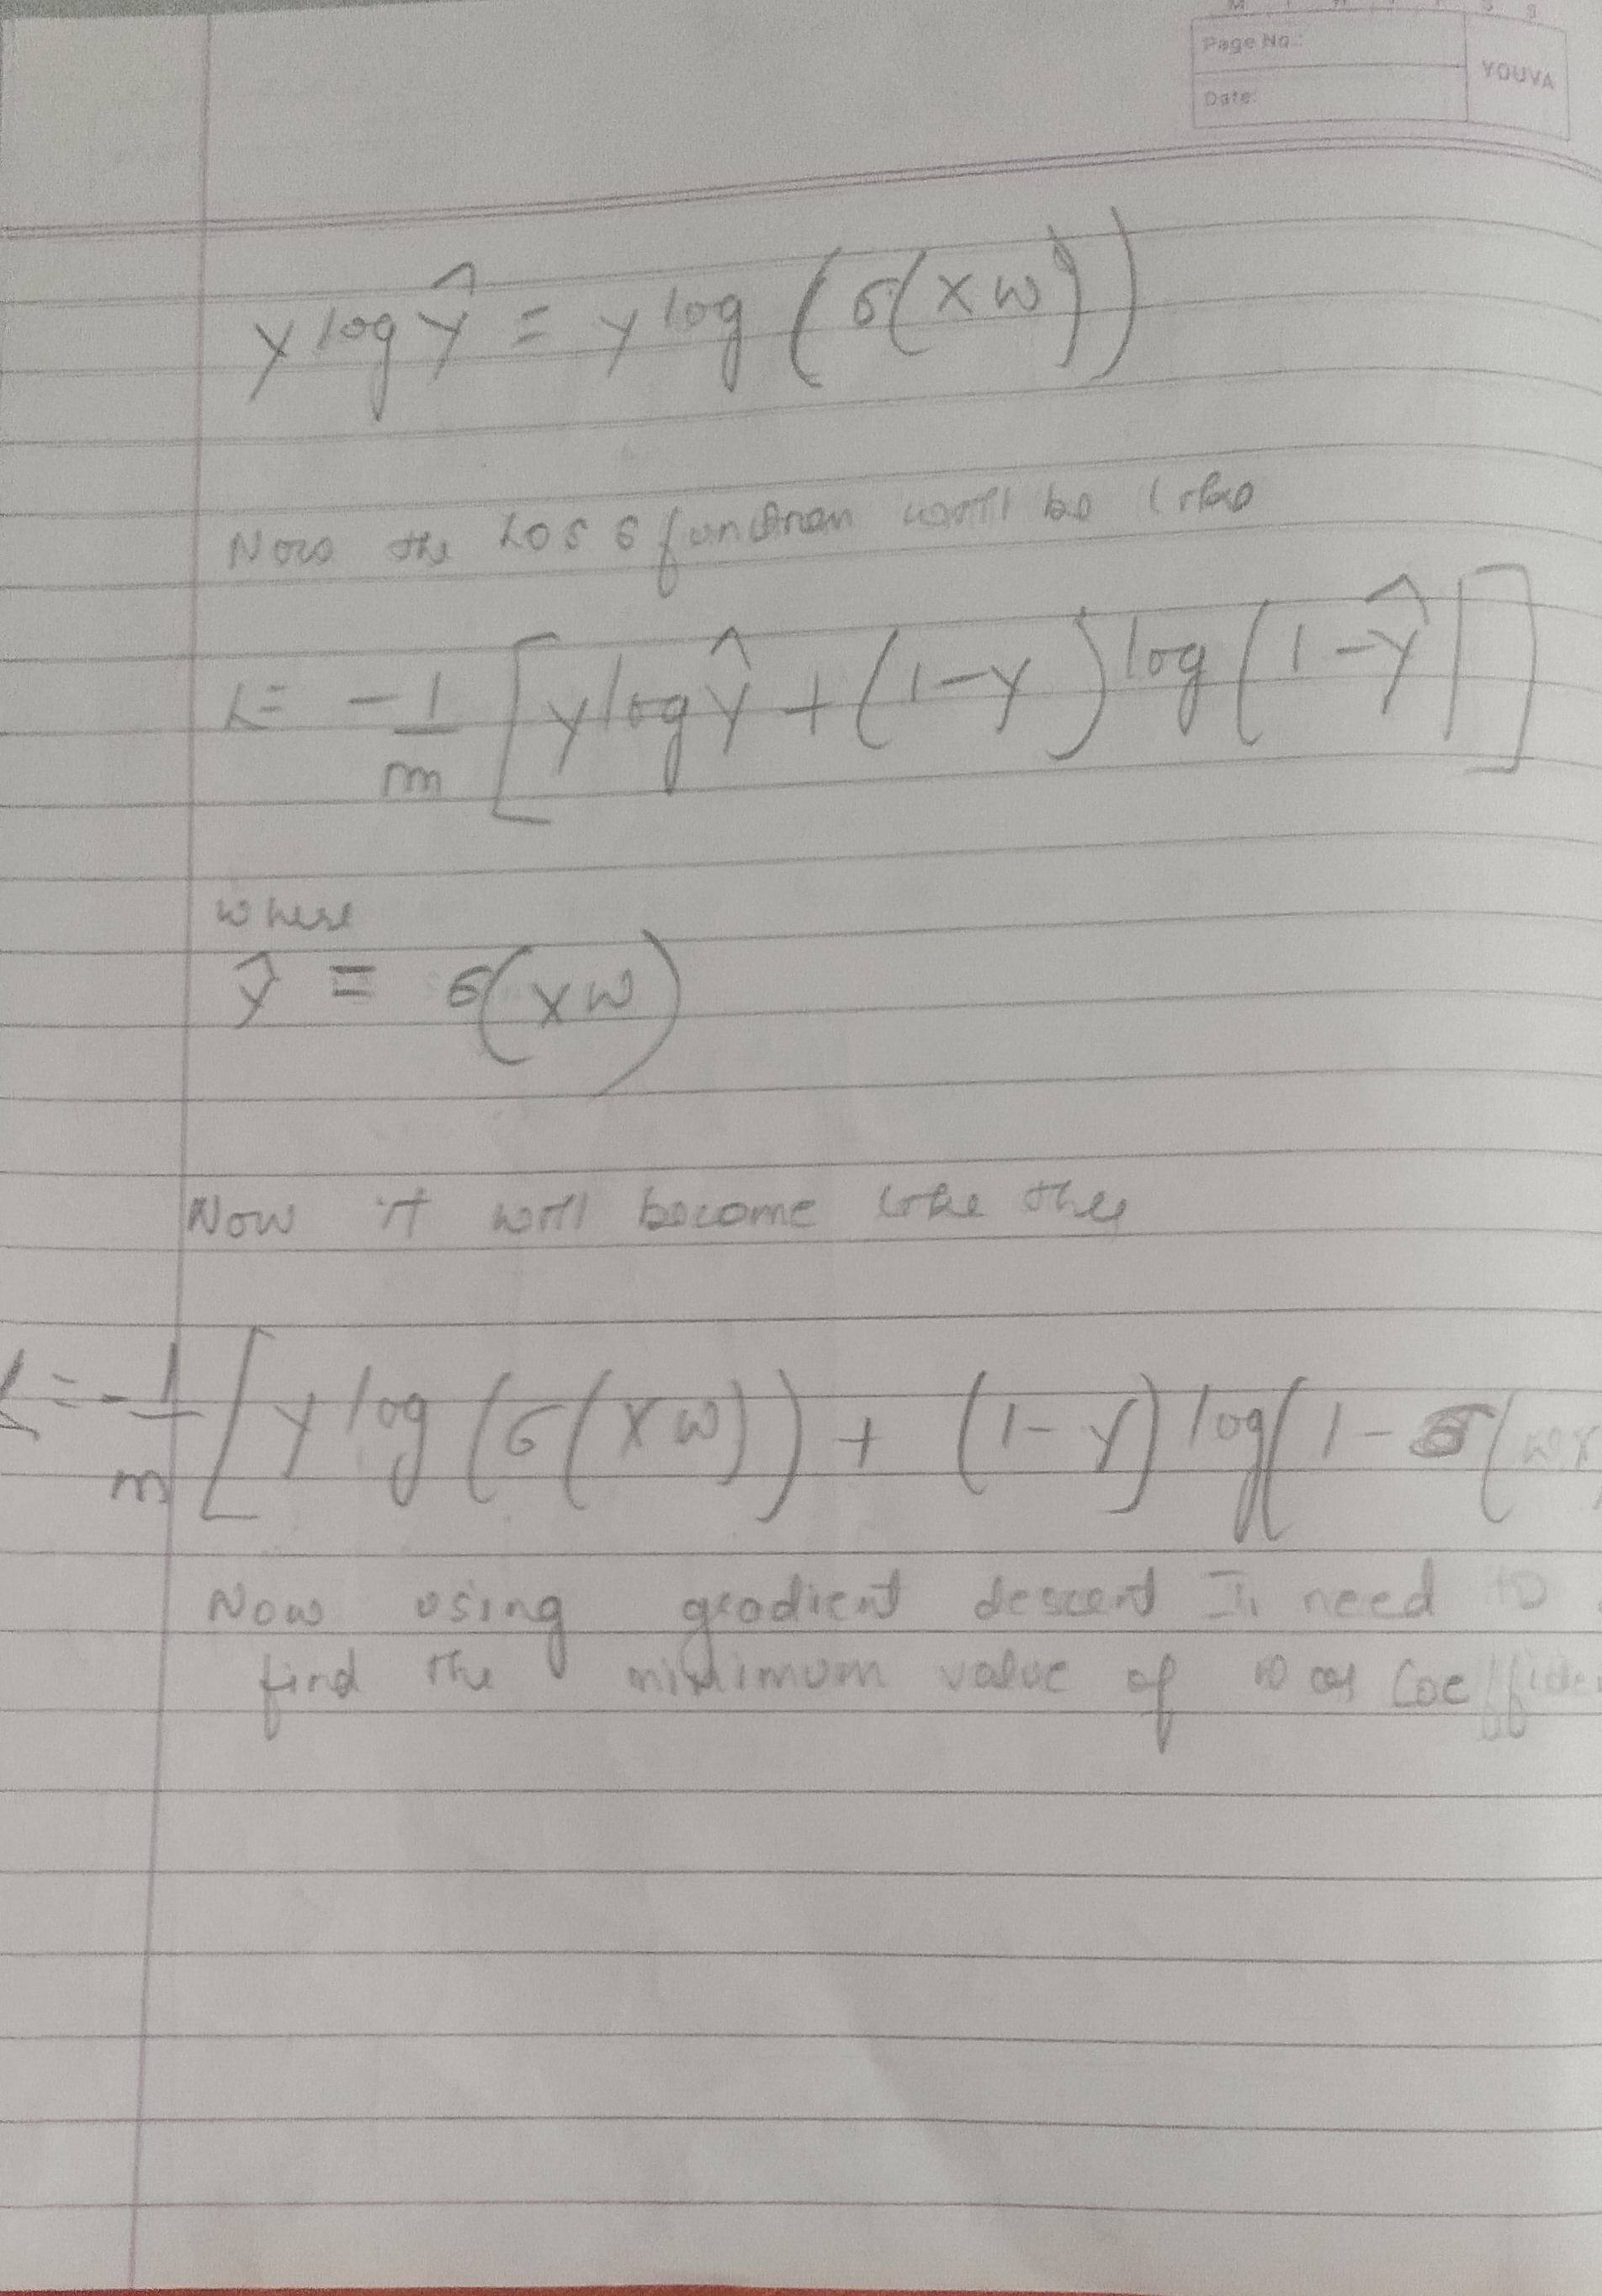 M T W T F S S
Page No.:
YOUVA
Date:
y log ŷ = y log (σ(xw))
Now the Loss function will be like
L = -1/m [y log ŷ + (1-y) log (1-ŷ)]
where
ŷ = σ(xw)
Now it will become like this
L = -1/m [y log (σ(xw)) + (1-y) log(1-σ(wx)
Now using gradient descent I need to
find the minimum value of w or Coefficien